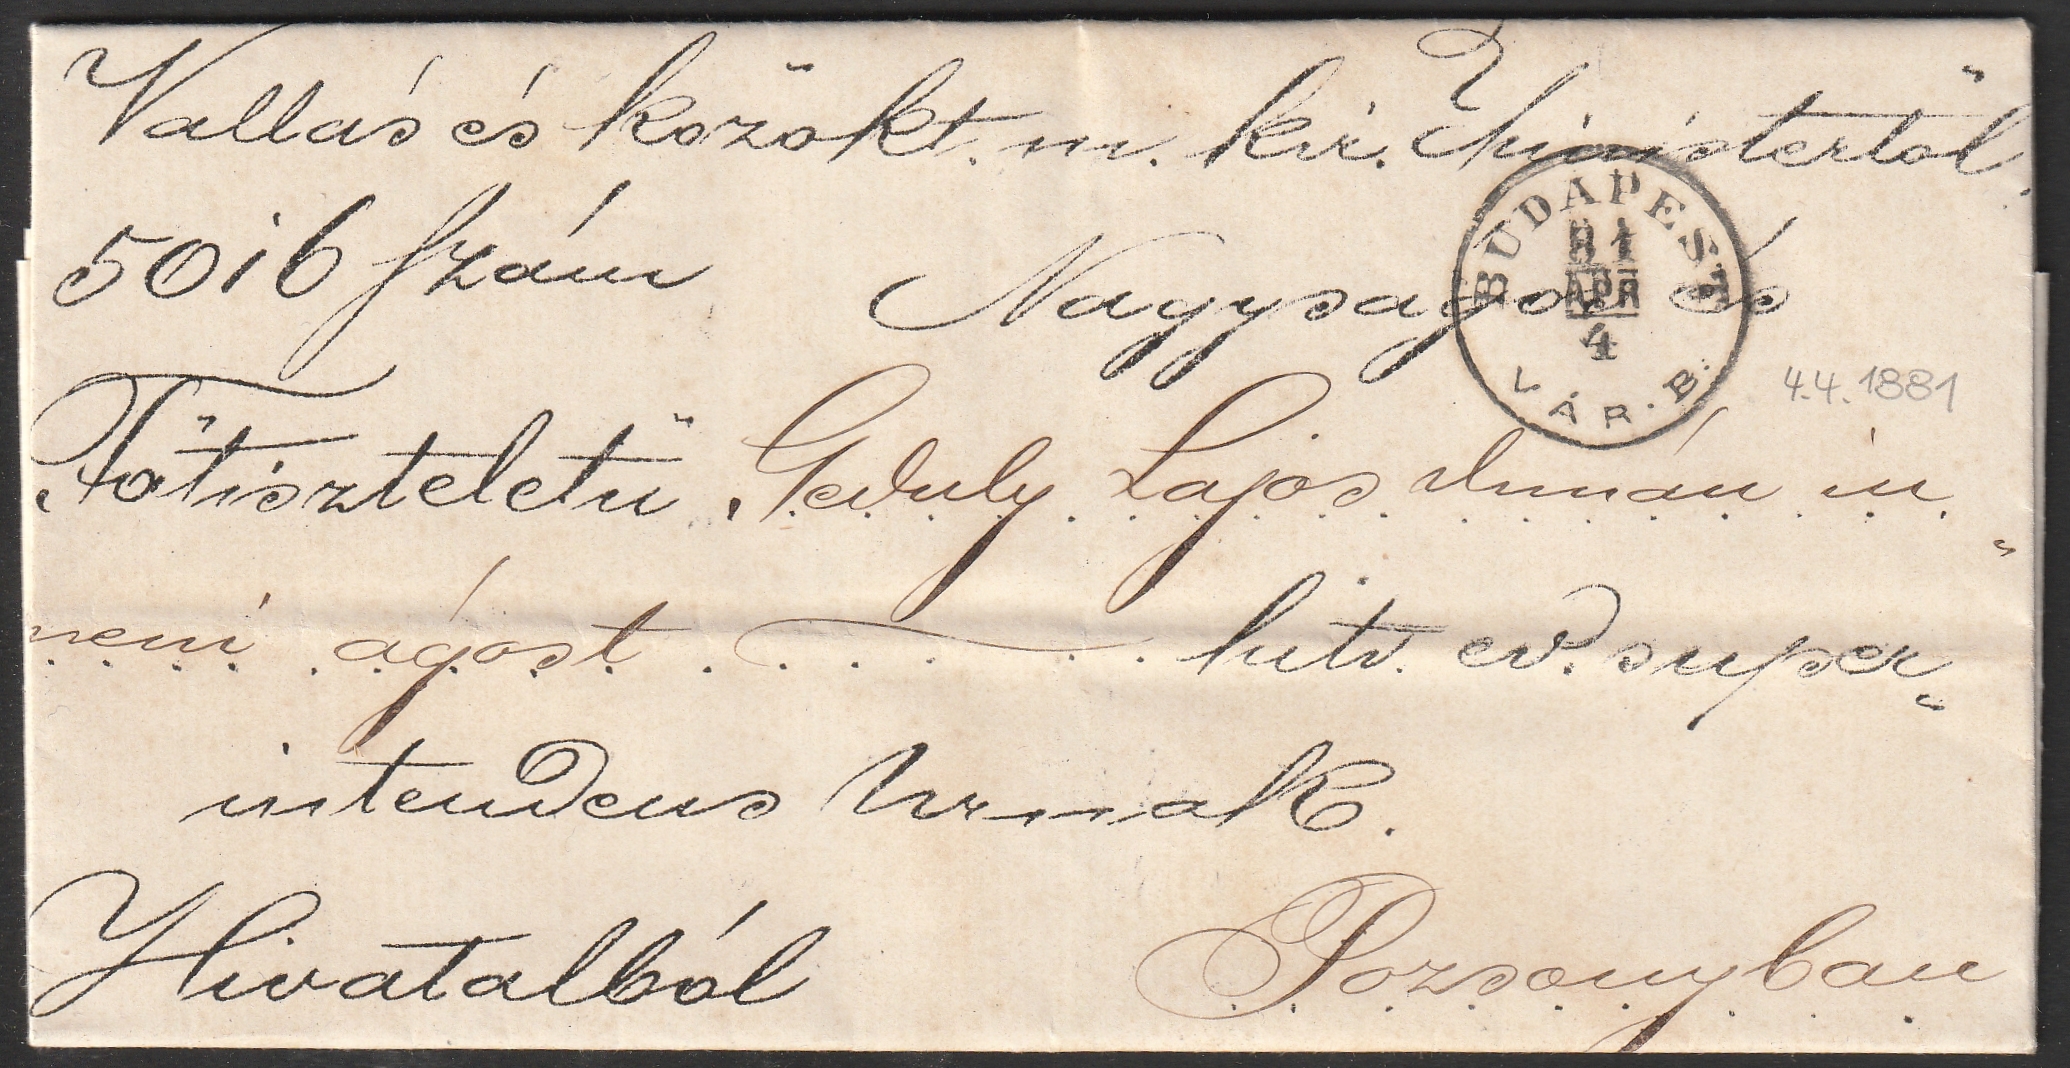 Vallás és közokt. m. kir. Ministertől.
5016 szám
Nagyságos és
BUDAPEST
81
APR
4
VÁR. B.
4.4.1881
Főtiszteletű Geduly Lajos dunán in„
neni ágost hitv. ev. super„
intendens Urnak.
Hivatalból
Pozsonyban